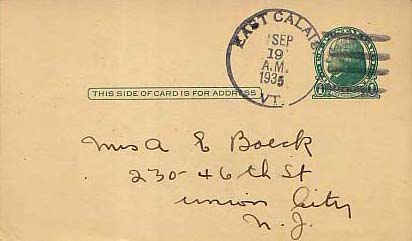 EAST CALAIS
SEP
19
A.M.
1935
VT.
THIS SIDE OF CARD IS FOR ADDRESS
Mrs A E Boeck
230-46th St
Union City
N.J.